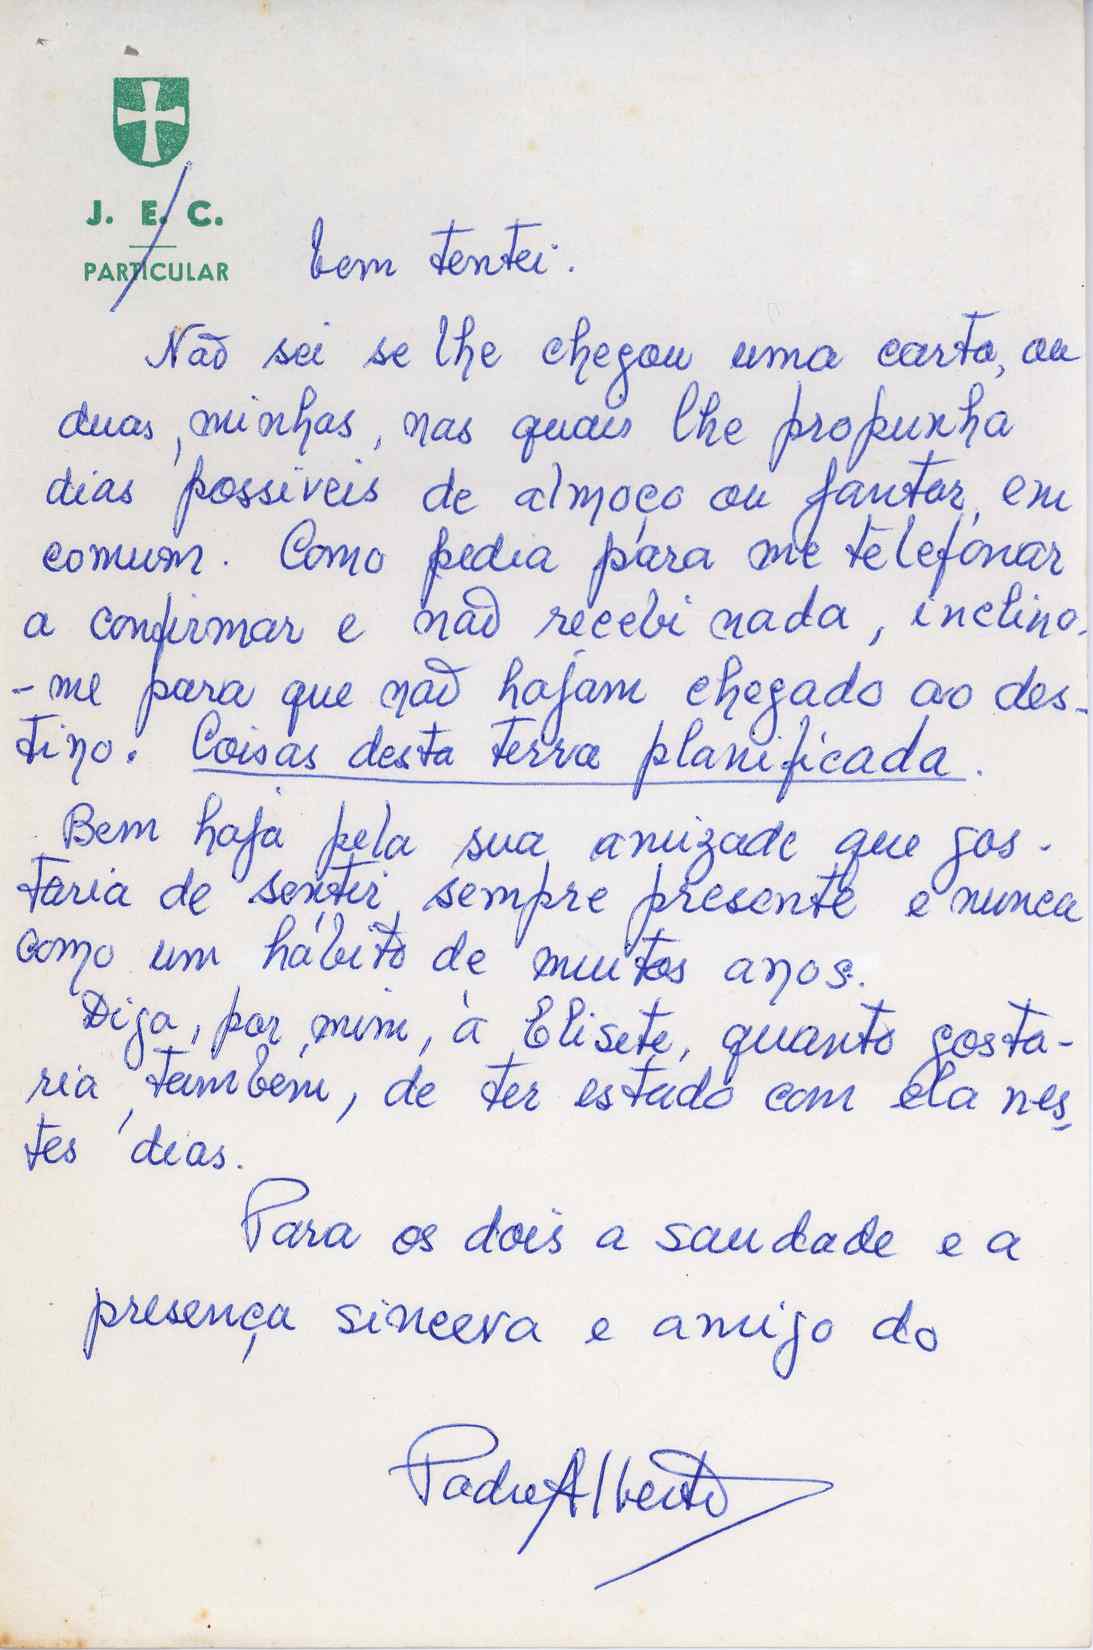 J. E. C.
PARTICULAR
bem tentei.
Não sei se lhe chegou uma carta, ou
duas, minhas, nas quais lhe propunha
dias possíveis de almoço ou jantar, em
comum. Como pedia para me telefonar
a confirmar e não recebi nada, inclino-
-me para que não hajam chegado ao des-
tino. Coisas desta terra planificada.
Bem haja pela sua amizade que gos-
taria de sentir sempre presente e nunca
como um hábito de muitos anos.
Diga, por mim, à Elisete, quanto gosta-
ria, também, de ter estado com ela nes-
tes dias.
Para os dois a saudade e a
presença sincera e amigo do
Padre Alberto